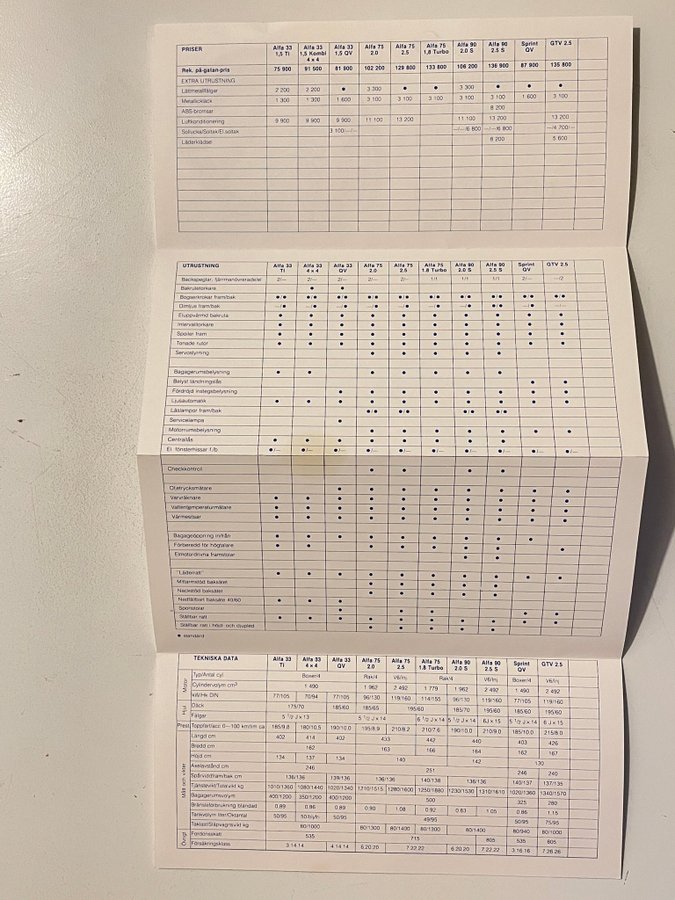 PRISER Alfa 33 1,5 TI Alfa 33 1,5 Kombi 4 x 4 Alfa 33 1,5 QV Alfa 75 2.0 Alfa 75 2.5 Alfa 75 1,8 Turbo Alfa 90 2.0 S Alfa 90 2.5 S Sprint QV GTV 2.5
Rek. på-gatan-pris 75 900 91 500 81 900 102 200 129 800 133 800 106 200 136 900 87 900 135 800
EXTRA UTRUSTNING
Lättmetallfälgar 2 200 2 200 ● 3 300 ● ● 3 300 ● ● ●
Metalliclack 1 300 1 300 1 600 3 100 3 100 3 100 3 100 3 100 1 600 3 100
ABS-bromsar 8 200
Luftkonditionering 9 900 9 900 9 900 11 100 13 200 11 100 13 200 13 200
Sollucka/Soltak/El.soltak 3 100/—/— —/—/6 800 —/—/6 800 —/4 700/—
Läderklädsel 8 200 5 600
UTRUSTNING Alfa 33 TI Alfa 33 4 x 4 Alfa 33 QV Alfa 75 2.0 Alfa 75 2.5 Alfa 75 1.8 Turbo Alfa 90 2.0 S Alfa 90 2.5 S Sprint QV GTV 2.5
Backspeglar, fjärrmanövrerade/el 2/— 2/— 2/— 2/— 2/— 1/1 1/1 1/1 2/— —/2
Bakrutetorkare ● ●
Bogserkrokar fram/bak ●/● ●/● ●/● ●/● ●/● ●/● ●/● ●/● ●/● ●/●
Dimljus fram/bak
Eluppvärmd bakruta ● ● ● ● ● ● ● ● ● ●
Intervalltorkare ● ● ● ● ● ● ● ● ● ●
Spoiler fram ● ● ● ● ● ● ● ● ● ●
Tonade rutor ● ● ● ● ● ● ● ● ● ●
Servostyrning ● ● ● ● ●
Bagagerumsbelysning ● ● ● ● ● ● ●
Belyst tändningslås ● ●
Fördröjd instegsbelysning ● ● ● ● ● ● ● ●
Ljusautomatik ● ● ● ● ● ● ● ● ● ●
Låslampor fram/bak ●/● ●/● ●/● ●/●
Servicelampa ●
Motorrumsbelysning ● ● ● ● ● ● ●
Centrallås ● ● ● ● ● ● ● ●
El. fönsterhissar f/b ●/— ●/— ●/— ●/— ●/— ●/— ●/— ●/— ●/— ●/—
Checkkontroll ● ● ● ●
Oljetrycksmätare ● ● ● ● ● ● ● ●
Varvräknare ● ● ● ● ● ● ● ● ● ●
Vattentemperaturmätare ● ● ● ● ● ● ● ● ● ●
Värmestolar ● ● ● ● ● ● ● ● ● ●
Bagageöppning inifrån ● ● ● ● ● ● ● ● ●
Förberedd för högtalare ● ● ● ● ● ● ●
Elmotordrivna framstolar
"Läderratt" ● ● ● ● ● ● ● ● ● ●
Mittarmstöd baksätet ● ● ● ● ●
Nackstöd baksätet ● ● ● ● ●
Nedfällbart baksäte 40/60
Sportstolar
Ställbar ratt
Ställbar ratt i höjd- och djupled ● ● ● ● ●
● standard
TEKNISKA DATA Alfa 33 TI Alfa 33 4 x 4 Alfa 33 QV Alfa 75 2.0 Alfa 75 2.5 Alfa 75 1.8 Turbo Alfa 90 2.0 S Alfa 90 2.5 S Sprint QV GTV 2.5
Motor Typ/Antal cyl Boxer/4 Rak/4 V6/Inj Rak/4 V6/Inj Boxer/4 V6/Inj
Cylindervolym cm³ 1 490 1 962 2 492 1 779 1 962 2 492 1 490 2 492
kW/Hk DIN 77/105 70/94 77/105 96/130 119/160 114/155 96/130 119/160 77/105 119/160
Hjul Däck 175/70 185/60 185/65 195/60 185/70 195/60 185/60 195/60
Fälgar 5 1/2 J x 13 5 1/2 J x 14 6 1/2 J x 14 5 1/2 J x 14 6J x 15 5 1/2 J x 14 6 J x 15
Prest. Toppfart/acc 0—100 km/tim ca 185/9.8 180/10.5 190/10.0 195/8.9 210/8.2 210/7.6 190/10.2 210/8.2 185/10.0 215/8.0
Mått och vikter Längd cm 402 414 402 433 442 440 403 426
Bredd cm 162 163 166 164 162 167
Höjd cm 134 137 134 140 142 130
Axelavstånd cm 246 251 246 240
Spårvidd fram/bak cm 136/136 139/136 136/136 140/138 136/136 140/137 137/135
Tjänstevikt/Totalvikt kg 1010/1360 1080/1440 1020/1340 1210/1515 1280/1600 1250/1880 1230/1530 1310/1610 1020/1360 1340/1570
Bagagerumsvolym 400/1200 350/1200 400/1200 500 325 280
Bränsleförbrukning blandad 0.89 0.96 0.89 0.90 1.08 0.92 0.83 1.05 0.86 1.15
Tankvolym liter/Oktantal 50/95 50 bly/fri 50/95 49/95 50/95 75/95
Taklast/Släpvagnsvikt kg 80/1000 80/1300 80/1400 80/1300 80/1400 80/940 80/1000
Övrigt Fordonsskatt 535 715 805 535 805
Försäkringsklass 3.14.14 4.14.14 6.20.20 7.22.22 6.20.20 7.22.22 3.16.16 7.26.26